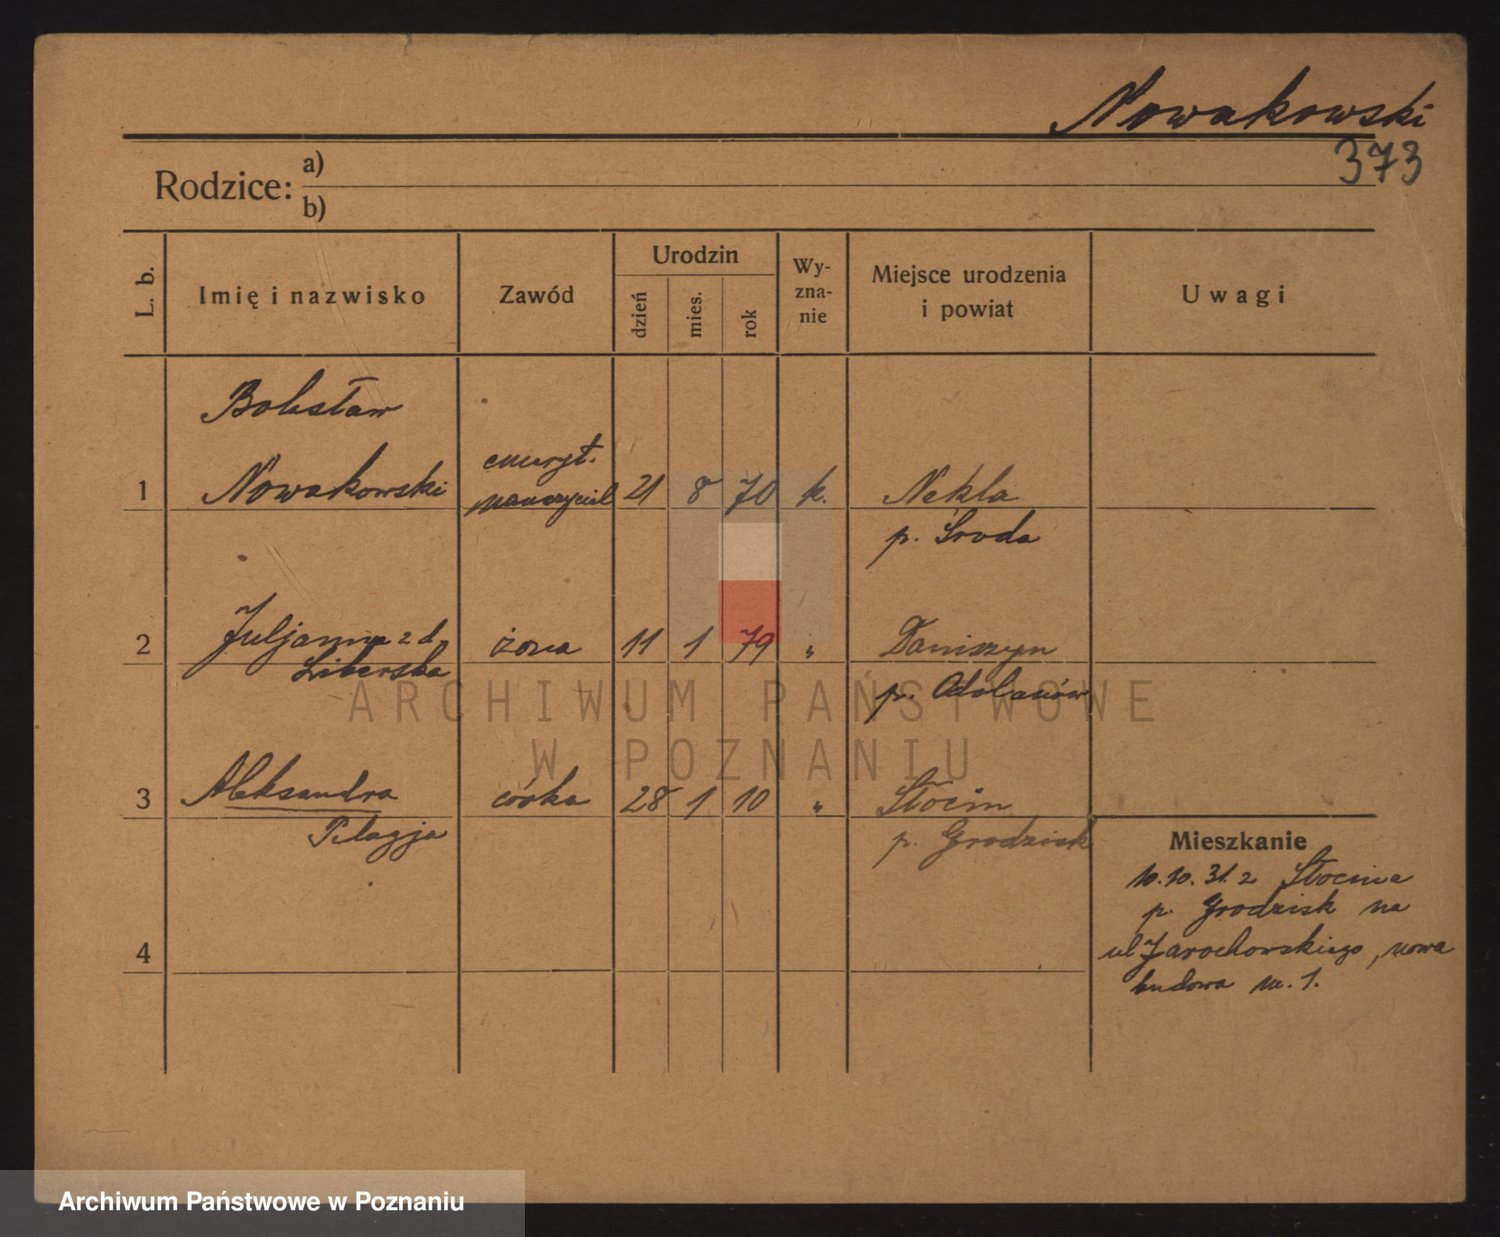 Nowakowski
373
Rodzice: a)
b)
L. b.
Imię i nazwisko
Zawód
Urodzin
dzień
mies.
rok
Wy-
zna-
nie
Miejsce urodzenia
i powiat
Uwagi
Bolesław
1 Nowakowski emeryt. nauczyciel 21 8 70 k. Nekla
p. Środa
2 Juljanna z d. Liberska żona 11 1 79 „ Daniszyn
p. Odolanów
3 Aleksandra córka 28 1 10 „ Słocin
Pelagja p. Grodzisk
Mieszkanie
10.10.31. z Słocina
p. Grodzisk na
ul Jarochowskiego, nowa
budowa nr. 1.
4
ARCHIWUM PAŃSTWOWE
W POZNANIU
Archiwum Państwowe w Poznaniu